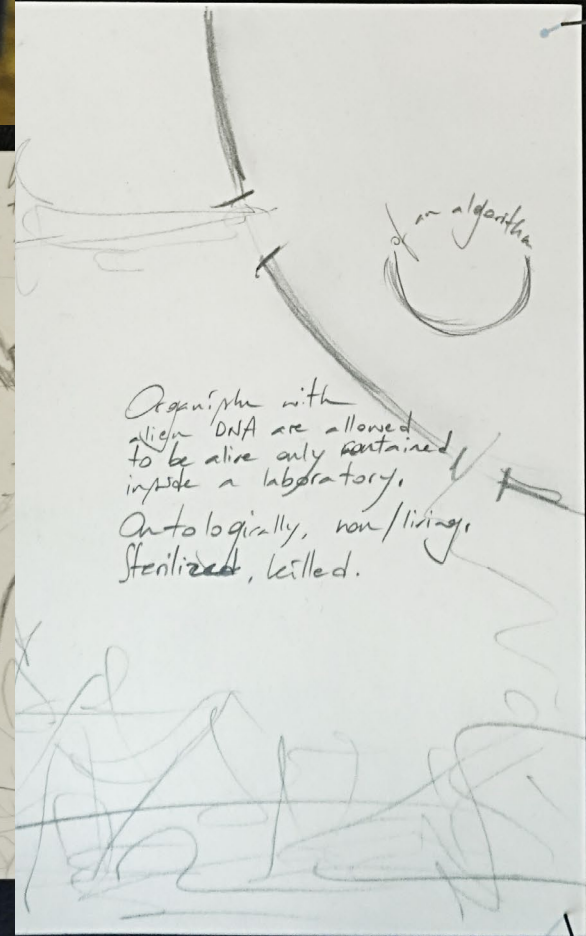 of an algorithm
Organisms with
alien DNA are allowed
to be alive only contained
inside a laboratory.
Ontologically, non/living.
Sterilized, killed.